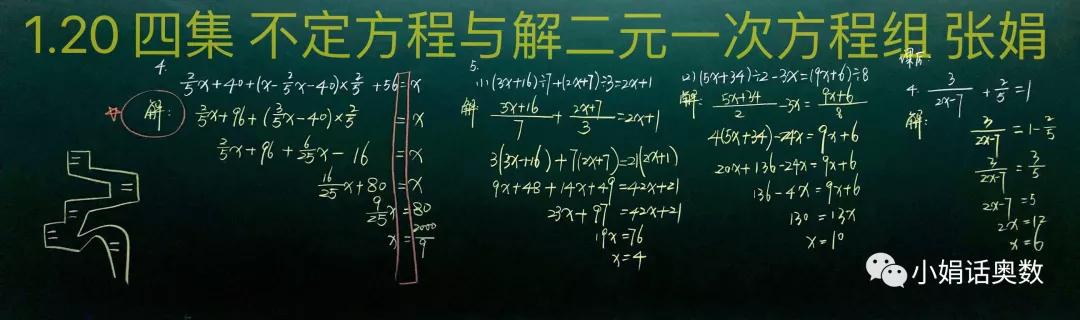 1.20 四集 不定方程与解二元一次方程组 张娟
4.
2/5x+40+(x-2/5x-40)×2/5+56=x
解: 2/5x+96+(3/5x-40)×2/5=x
2/5x+96+6/25x-16=x
16/25x+80=x
9/25x=80
x=2000/9
5.
(1)(3x+16)÷7+(2x+7)÷3=2x+1
解: (3x+16)/7+(2x+7)/3=2x+1
3(3x+16)+7(2x+7)=21(2x+1)
9x+48+14x+49=42x+21
23x+97=42x+21
19x=76
x=4
(2)(5x+34)÷2-3x=(9x+6)÷8
解: (5x+34)/2-3x=(9x+6)/8
4(5x+34)-24x=9x+6
20x+136-24x=9x+6
136-4x=9x+6
130=13x
x=10
课后:
4. 3/(2x-7)+2/5=1
解: 3/(2x-7)=1-2/5
3/(2x-7)=3/5
2x-7=5
2x=12
x=6
小娟话奥数